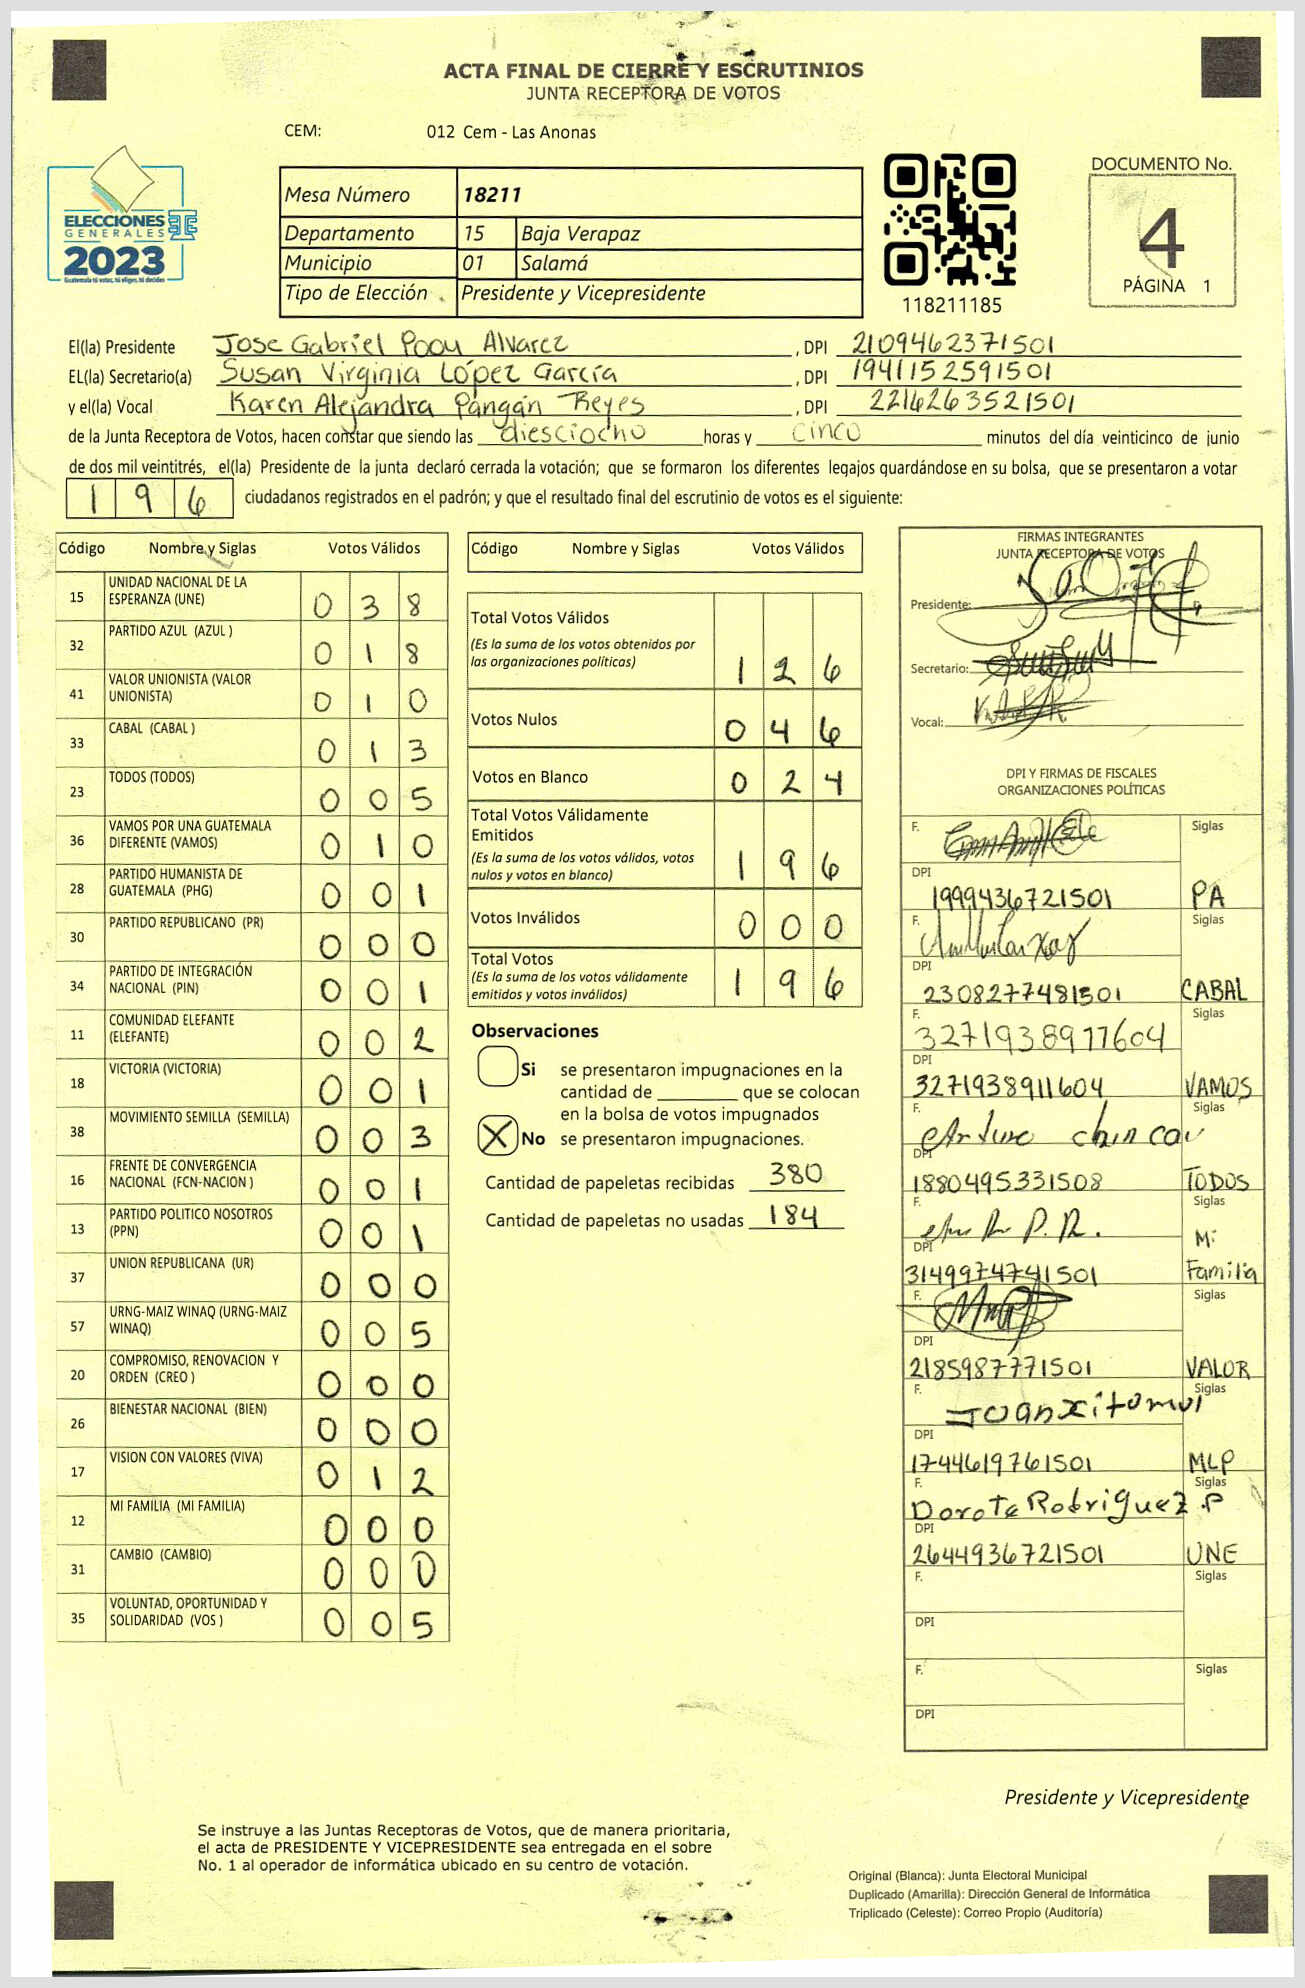 ACTA FINAL DE CIERRE Y ESCRUTINIOS
JUNTA RECEPTORA DE VOTOS
CEM: 012 Cem - Las Anonas
ELECCIONES
GENERALES
2023
Guatemala tú votas, tú eliges, tú decides
Mesa Número 18211
Departamento 15 Baja Verapaz
Municipio 01 Salamá
Tipo de Elección Presidente y Vicepresidente
118211185
DOCUMENTO No.
4
PÁGINA 1
El(la) Presidente Jose Gabriel Poou Alvarez, DPI 2109462371501
EL(la) Secretario(a) Susan Virginia López García, DPI 1941152591501
y el(la) Vocal Karen Alejandra Pangán Reyes, DPI 2216263521501
de la Junta Receptora de Votos, hacen constar que siendo las diesciocho horas y cinco minutos del día veinticinco de junio
de dos mil veintitrés, el(la) Presidente de la junta declaró cerrada la votación; que se formaron los diferentes legajos guardándose en su bolsa, que se presentaron a votar
196 ciudadanos registrados en el padrón; y que el resultado final del escrutinio de votos es el siguiente:
Código Nombre y Siglas Votos Válidos
15 UNIDAD NACIONAL DE LA ESPERANZA (UNE) 038
32 PARTIDO AZUL (AZUL ) 018
41 VALOR UNIONISTA (VALOR UNIONISTA) 010
33 CABAL (CABAL ) 013
23 TODOS (TODOS) 005
36 VAMOS POR UNA GUATEMALA DIFERENTE (VAMOS) 010
28 PARTIDO HUMANISTA DE GUATEMALA (PHG) 001
30 PARTIDO REPUBLICANO (PR) 000
34 PARTIDO DE INTEGRACIÓN NACIONAL (PIN) 001
11 COMUNIDAD ELEFANTE (ELEFANTE) 002
18 VICTORIA (VICTORIA) 001
38 MOVIMIENTO SEMILLA (SEMILLA) 003
16 FRENTE DE CONVERGENCIA NACIONAL (FCN-NACION ) 001
13 PARTIDO POLITICO NOSOTROS (PPN) 001
37 UNION REPUBLICANA (UR) 000
57 URNG-MAIZ WINAQ (URNG-MAIZ WINAQ) 005
20 COMPROMISO, RENOVACION Y ORDEN (CREO ) 000
26 BIENESTAR NACIONAL (BIEN) 000
17 VISION CON VALORES (VIVA) 012
12 MI FAMILIA (MI FAMILIA) 000
31 CAMBIO (CAMBIO) 000
35 VOLUNTAD, OPORTUNIDAD Y SOLIDARIDAD (VOS ) 005
Código Nombre y Siglas Votos Válidos
Total Votos Válidos 126
(Es la suma de los votos obtenidos por
las organizaciones políticas)
Votos Nulos 046
Votos en Blanco 024
Total Votos Válidamente
Emitidos 196
(Es la suma de los votos válidos, votos
nulos y votos en blanco)
Votos Inválidos 000
Total Votos 196
(Es la suma de los votos válidamente
emitidos y votos inválidos)
Observaciones
Si se presentaron impugnaciones en la
cantidad de ________ que se colocan
en la bolsa de votos impugnados
X No se presentaron impugnaciones.
Cantidad de papeletas recibidas 380
Cantidad de papeletas no usadas 184
FIRMAS INTEGRANTES
JUNTA RECEPTORA DE VOTOS
Presidente:
Secretario:
Vocal:
DPI Y FIRMAS DE FISCALES
ORGANIZACIONES POLÍTICAS
F. Siglas
DPI 1999436721501 PA
F. Siglas
DPI 2308277481501 CABAL
F. 3271938911604 Siglas
DPI 3271938911604 VAMOS
F. Arturo chin cav Siglas
DPI 1880495331508 TODOS
F. P. R. Siglas
DPI 3149974741501 Mi Familia
F. Siglas
DPI 2185987771501 VALOR
F. Juan xitumul Siglas
DPI 1744619761501 MLP
F. Dorote Rodriguez .P Siglas
DPI 2644936721501 UNE
F. Siglas
DPI
F. Siglas
DPI
Presidente y Vicepresidente
Se instruye a las Juntas Receptoras de Votos, que de manera prioritaria,
el acta de PRESIDENTE Y VICEPRESIDENTE sea entregada en el sobre
No. 1 al operador de informática ubicado en su centro de votación.
Original (Blanca): Junta Electoral Municipal
Duplicado (Amarilla): Dirección General de Informática
Triplicado (Celeste): Correo Propio (Auditoría)